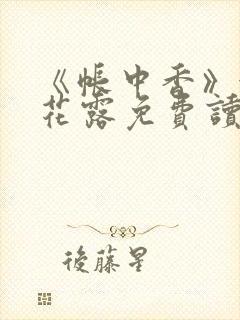 《帳中香》
花露免費讀
後藤星